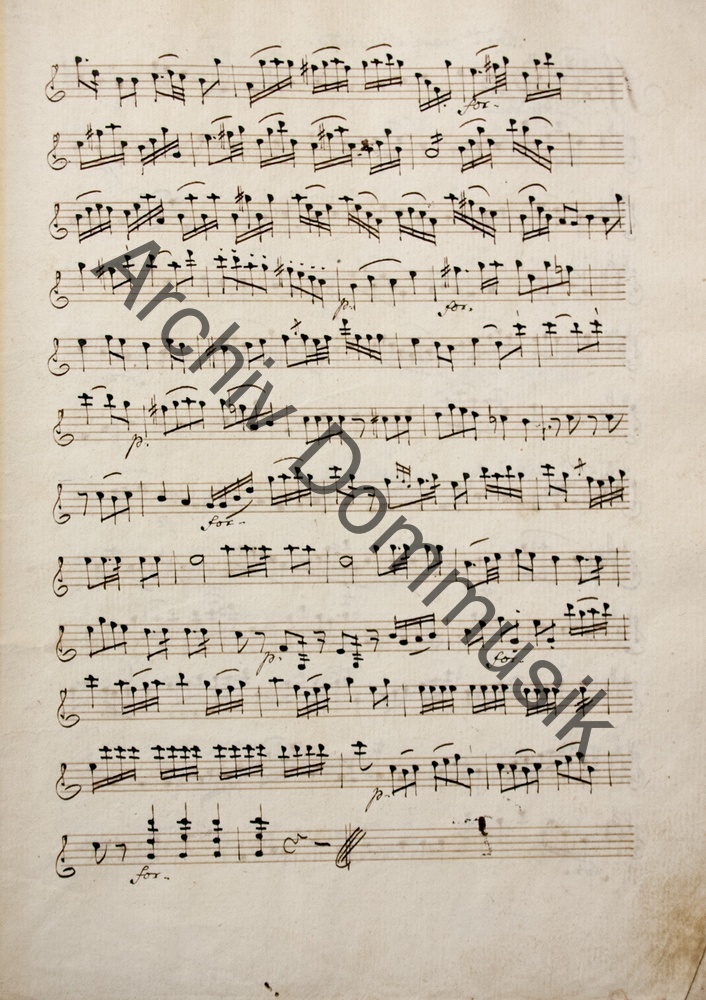 for.
p.
for.
p.
for.
p.
for.
p.
for.
Archiv Dommusik